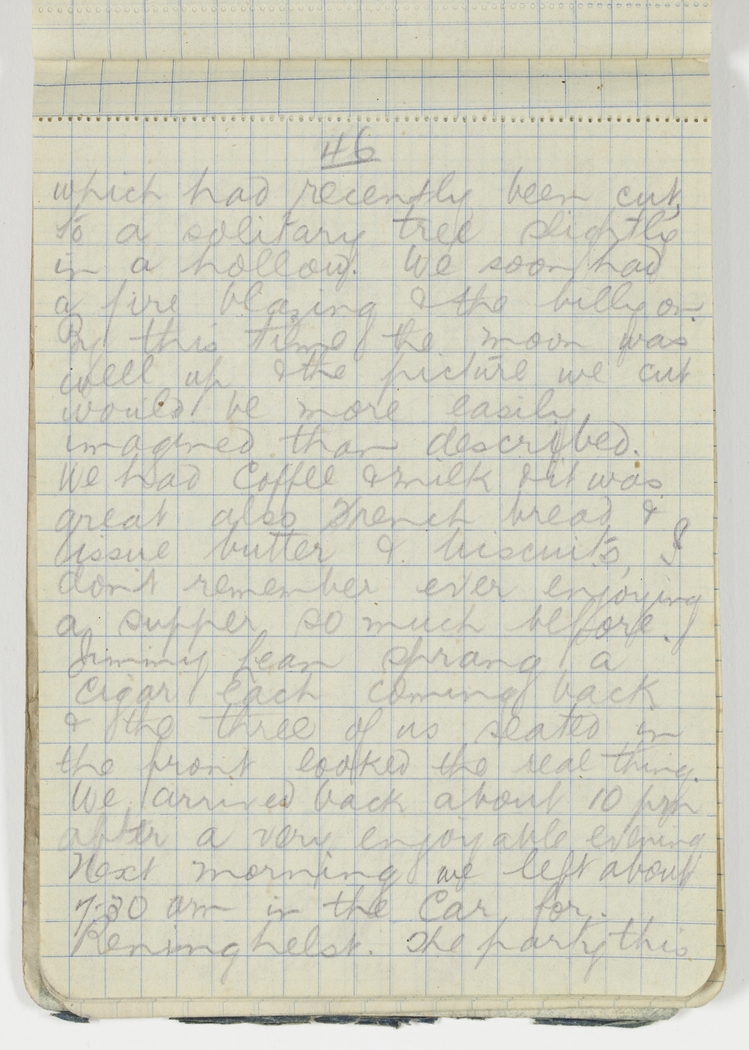 46
which had recently been cut,
to a solitary tree slightly
in a hollow. We soon had
a fire blazing & the billy on.
By this time the moon was
well up & the picture we cut
would be more easily
imagined than described.
We had Coffee & milk & it was
great also French bread &
tissue butter & biscuits, I
don't remember ever enjoying
a supper so much before.
Jimmy Lean sprang a
cigar each coming back
& the three of us seated in
the front looked the real thing.
We arrived back about 10 pm
after a very enjoyable evening
Next morning we left about
7.30 am in the Car for.
Reninghelst. The party this